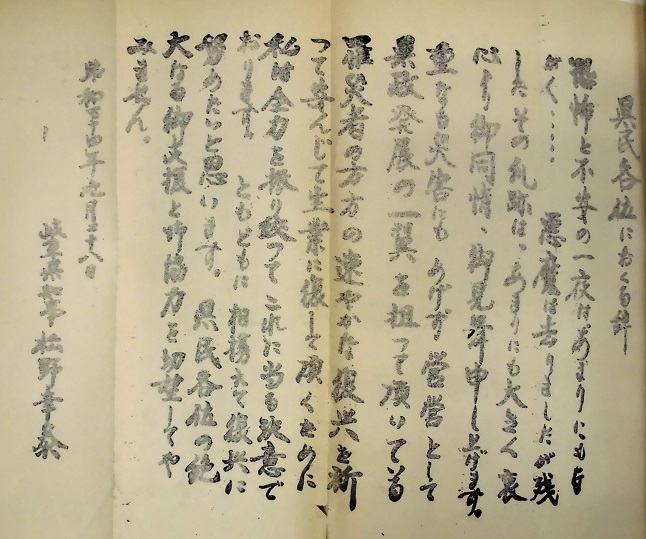 県民各位におくる辞
恐怖と不安の一夜は、あまりにも
なく…… 悪魔は去りましたが残
したその爪跡は、あまりにも大きく衷
心より御同情、御見舞申し上げます。
重なる災害にもめげず営営として
県政発展の一翼を担って頂いて
罹災者の方方の速やかな復興を祈
って安んじて生業に復して頂くために
私は全力を振り絞ってこれに当る決意で
おります。 ともどもに相携えて復興に
努めたいと思います。 県民各位の絶
大なる御支援と御協力を切望してや
みません。
昭和三十四年九月二十八日
岐阜県知事松野幸泰